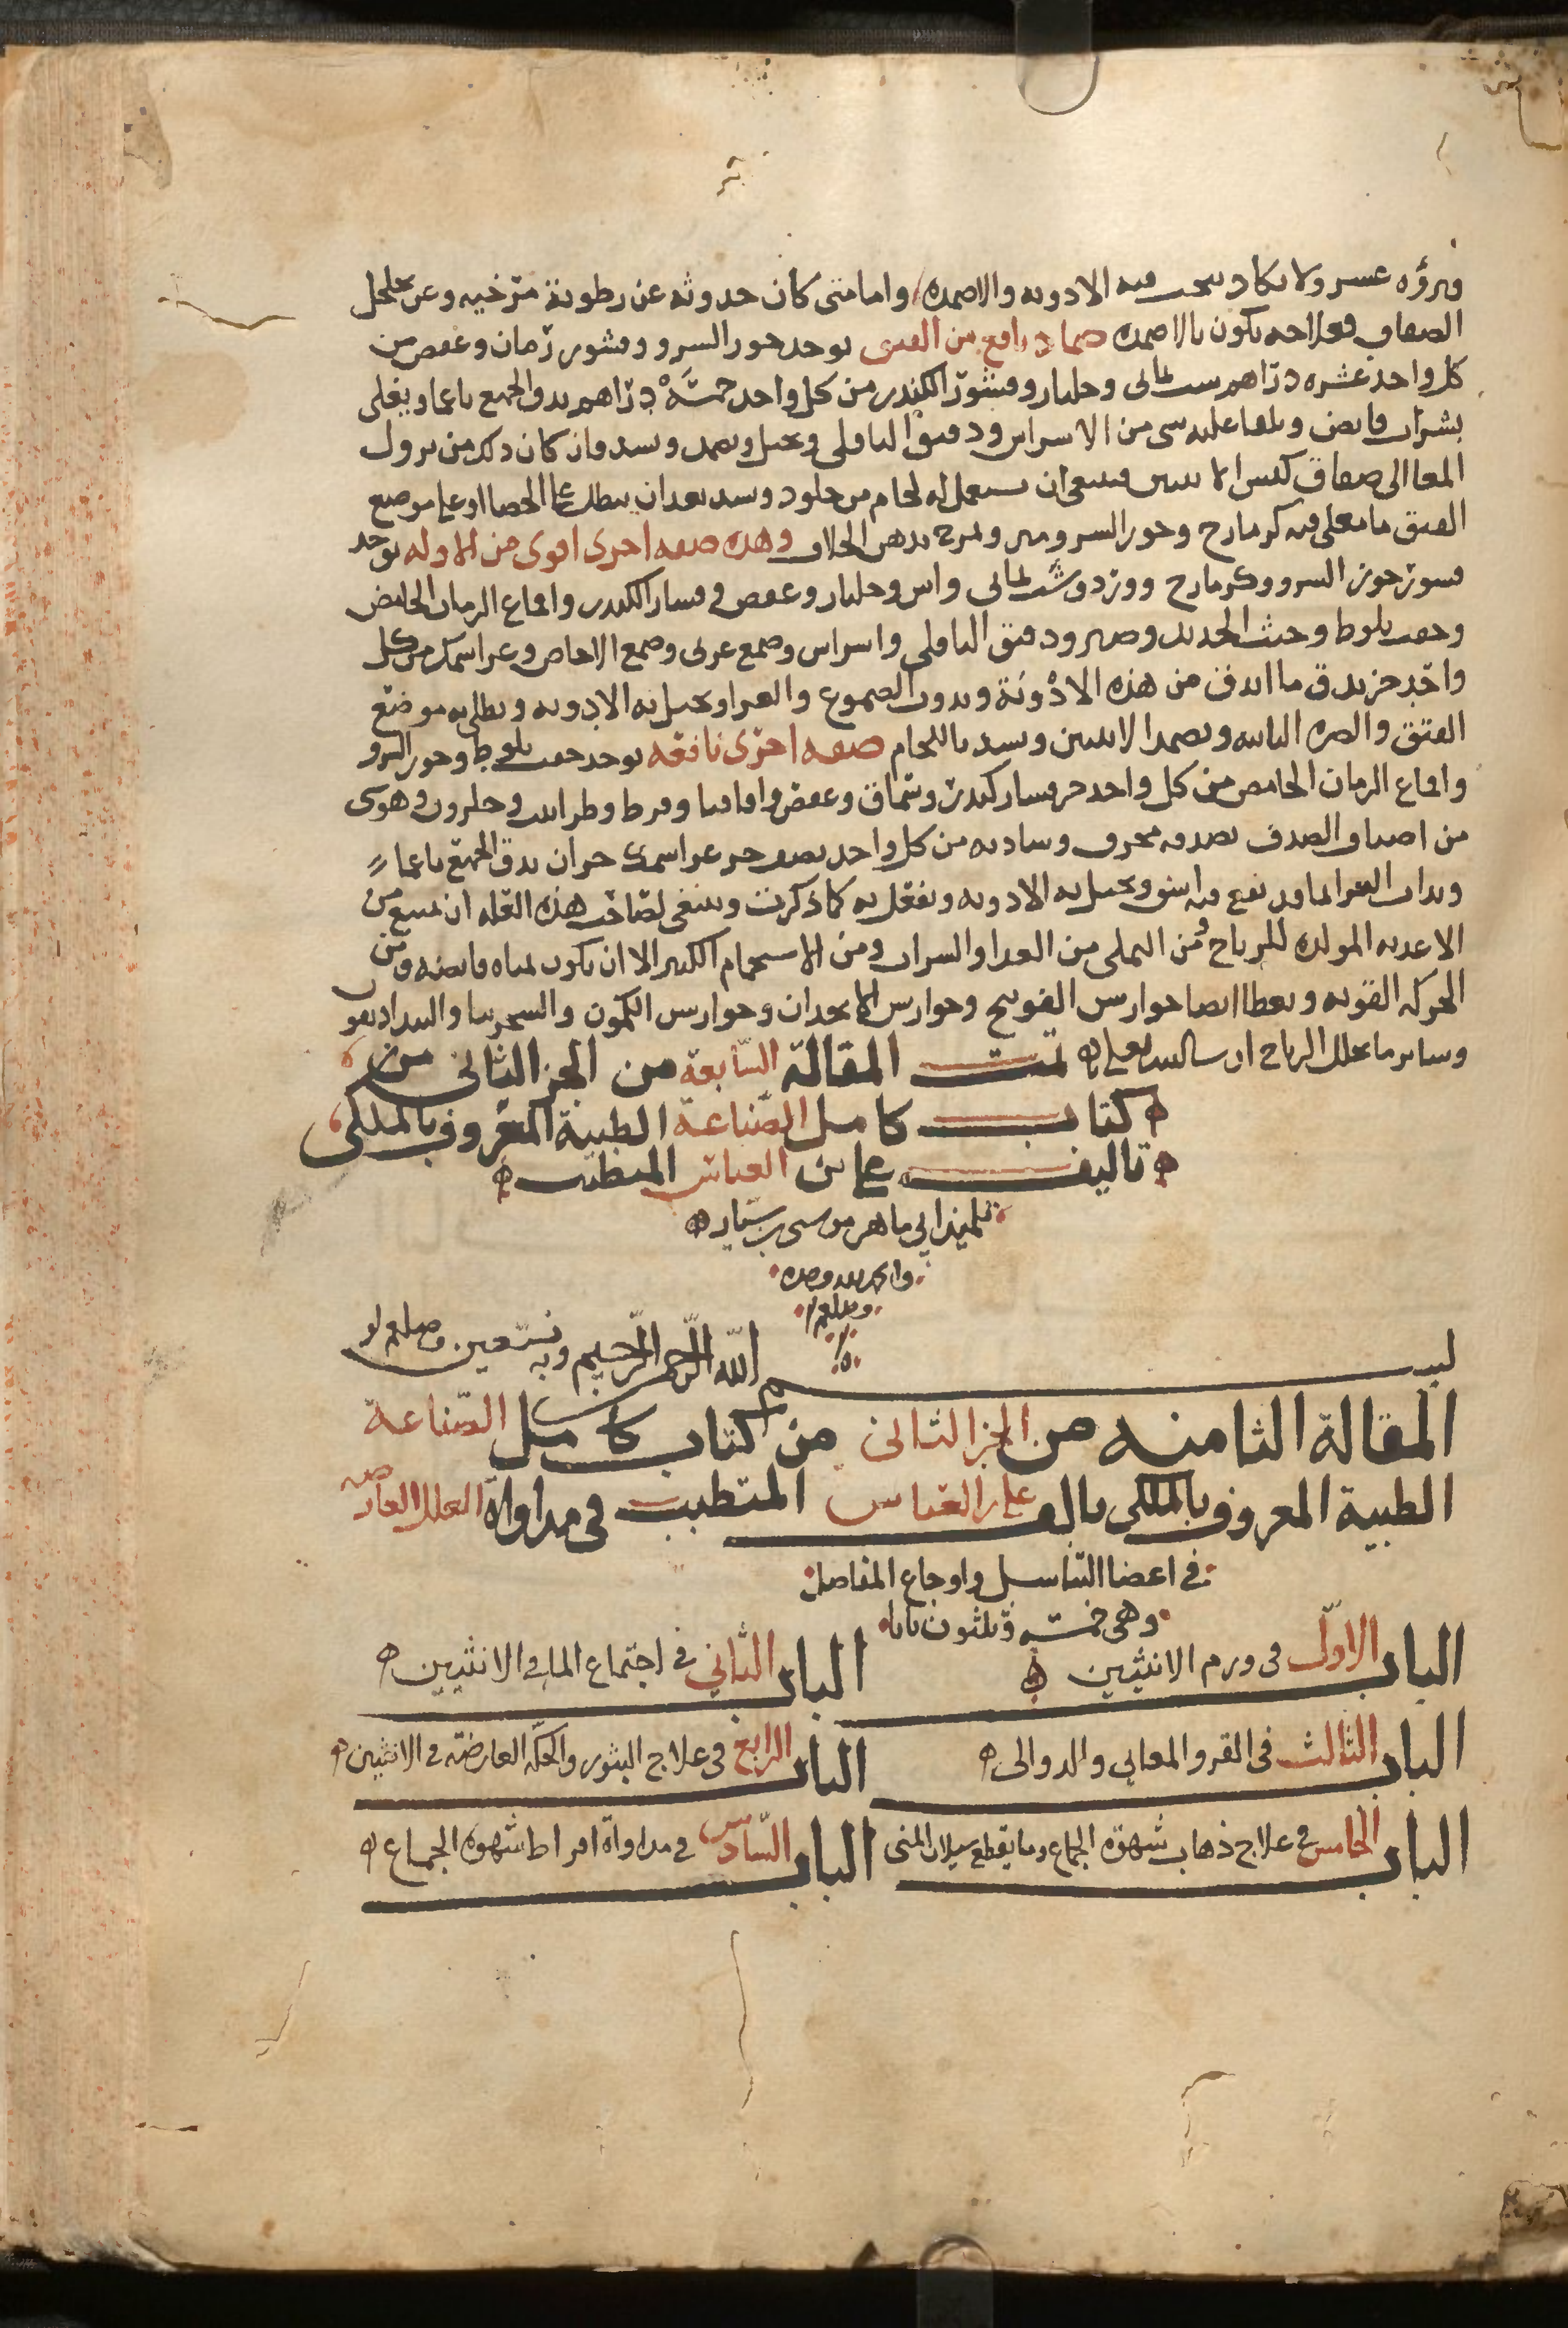 وبرؤه عسر ولا يكاد ينجب فيه الادويه والاضمده واما متى كان حدوثه عن رطوبة مرخيه وعن تخلخل
الصفاق فعلاجه يكون بالاضمده ضماد نافع من الفتق يوخذ جوز السرو وقشور رمان وعفص من
كل واحد عشره دراهم شب يمانى وجلنار وقشور الكندر من كل واحد خمسة دراهم يدق الجميع ناعما ويغلى
بشراب قابض ويلقا عليه شى من الاشراس ودقيق الباقلى ويجبل ويضمد ويشد فان كان ذلك من نزول
المعا الى صفاق كيس الانثيين فينبغى ان يستعمل له لجام من جلود ويشد بعد ان يطلى على الخصا او على موضع
الفتق ما يغلى فيه كزمازج وجوز السرو ومر ويمرخ بدهن الخلاف وهذه صفه اخرى اقوى من الاوله يوخذ
قشور جوز السرو وكزمازج وورد وشب يمانى واس وجلنار وعفص وقشار الكندر واقماع الرمان الحامض
وجفت بلوط وخبث الحديد وصبر ودقيق الباقلى واشراس وصمغ عربى وصمغ الاجاص وغرا السمك من كل
واحد جز يدق ما اندق من هذه الادوية ويذوب الصموغ والغرا ويجبل به الادويه ويطلى به موضع
الفتق والسره الناتيه ويضمد الانثيين ويشد باللجام صفه اخرى نافعه يوخذ جفت بلوط وجوز السرو
واقماع الرمان الحامض من كل واحد جز قشار كندر وسماق وعفص واقاقيا وقرط وطراثيث وحلزون وهو شى
من اصناف الصدف بصدفه محرق وسادنه من كل واحد نصف جز غرا السمك جزان يدق الجميع ناعما
ويذاب الغرا بما قد نقع فيه اشق ويجبل به الادويه ويفعل به كما ذكرت وينبغى لصاحب هذه العله ان يمنع من
الاغذيه المولده للرياح ومن التملى من الغذا والشراب ومن الاستحمام الكثير الا ان يكون بمياه قابضه ومن
الحركه القويه ويعطا ايضا جوارش الفوتنج وجوارش الانجدان وجوارش الكمون والسجرينا والبنداديقون
وساير ما يحلل الرياح ان شا الله تعالى تمت المقالة السابعة من الجز الثانى من
كتاب كامل الصناعة الطبية المعروف بالملكى
تاليف على بن العباس المتطبب
تلميذ ابى ماهر موسى بن سيار
والحمد لله وحده
بسم الله الرحمن الرحيم وبه نستعين
المقالة الثامنه من الجز الثانى من كتاب كامل الصناعة
الطبية المعروف بالملكى تاليف على بن العباس المتطبب فى مداواة العلل العارضه
فى اعضا التناسل واوجاع المفاصل
وهى خمسه وثلثون بابا
الباب الاول فى ورم الانثيين الباب الثانى فى اجتماع الما فى الانثيين
الباب الثالث فى القرو المعايى والدوالى الباب الرابع فى علاج البثور والحكه العارضه فى الانثيين
الباب الخامس فى علاج ذهاب شهوة الجماع وما يقطع سيلان المنى الباب السادس فى مداواة افراط شهوة الجماع